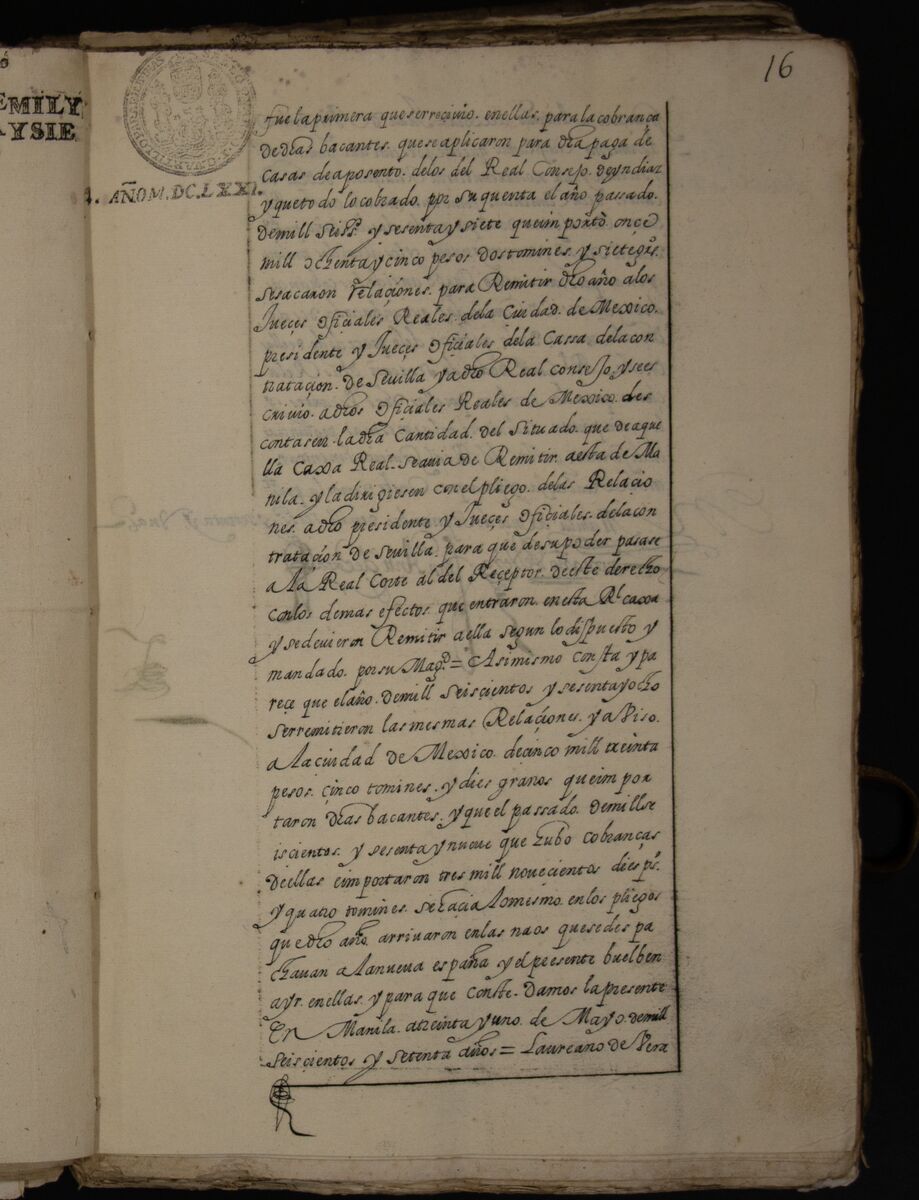 16
EMILY
AYSIE
AÑOM.DC.LXXI.
fue la primera que se rrecivio. en ellas. para la cobrança
de dhas bacantes. que se aplicaron para dha paga de
Casas de aposento. de los del Real Consejo. de yndias
y que todo lo cobrado. por su quenta el año passado.
de mill seisº. y sesenta y siete que importò. onçe
mill ochenta y cinco pesos dos tomines. y siete gs.
se sacaron Relaçiones. para Remitir dho año a los
Jueçes officiales Reales. de la Ciudad. de Mexico.
presidente y Jueçes officiales de la Cassa de la con
trataçion. de Sevilla y a dho Real consejo. y se es
crivio. a dhos officiales Reales de Mexico. des
contasen. la dha Cantidad. del situado. que de aque
lla Caxa Real. se avia de Remitir. a esta de Ma
nila. y la dirigiesen con el pliego. de las Relacio
nes. a dho presidente y Jueçes officiales. de la con
tratación de Sevilla. para que de su poder pasase
a la Real Corte al del Reçeptor. de este derecho
con los demas efectos. que entraron. en esta Rl caxa
y se devieron Remitir a ella segun lo dispuesto y
mandado. por su Magd.= Asimismo consta y pa
reçe que el año. de mill seiscientos y sesenta y ocho
se rremitieron las mesmas Relaçiones. y aviso.
a la ciudad de Mexico. de cinco mill treinta
pesos. çinco tomines. y dies granos que impor
taron dhas bacantes. y que el passado. de mill se
iscientos. y sesenta y nueve que hubo cobranças
de ellas importaron tres mill noveçientos dies ps.
y quatro tomines. se haçia lo mismo. en los pliegos
que dho año. arrivaron en las naos que se des pa
chavan a la nueva españa y el pressente buelben
a yr. en ellas. y para que conste. Damos la presente
En Manila. a treinta y uno. de Mayo. de mill
seisçientos y setenta años = Laureano de Vera